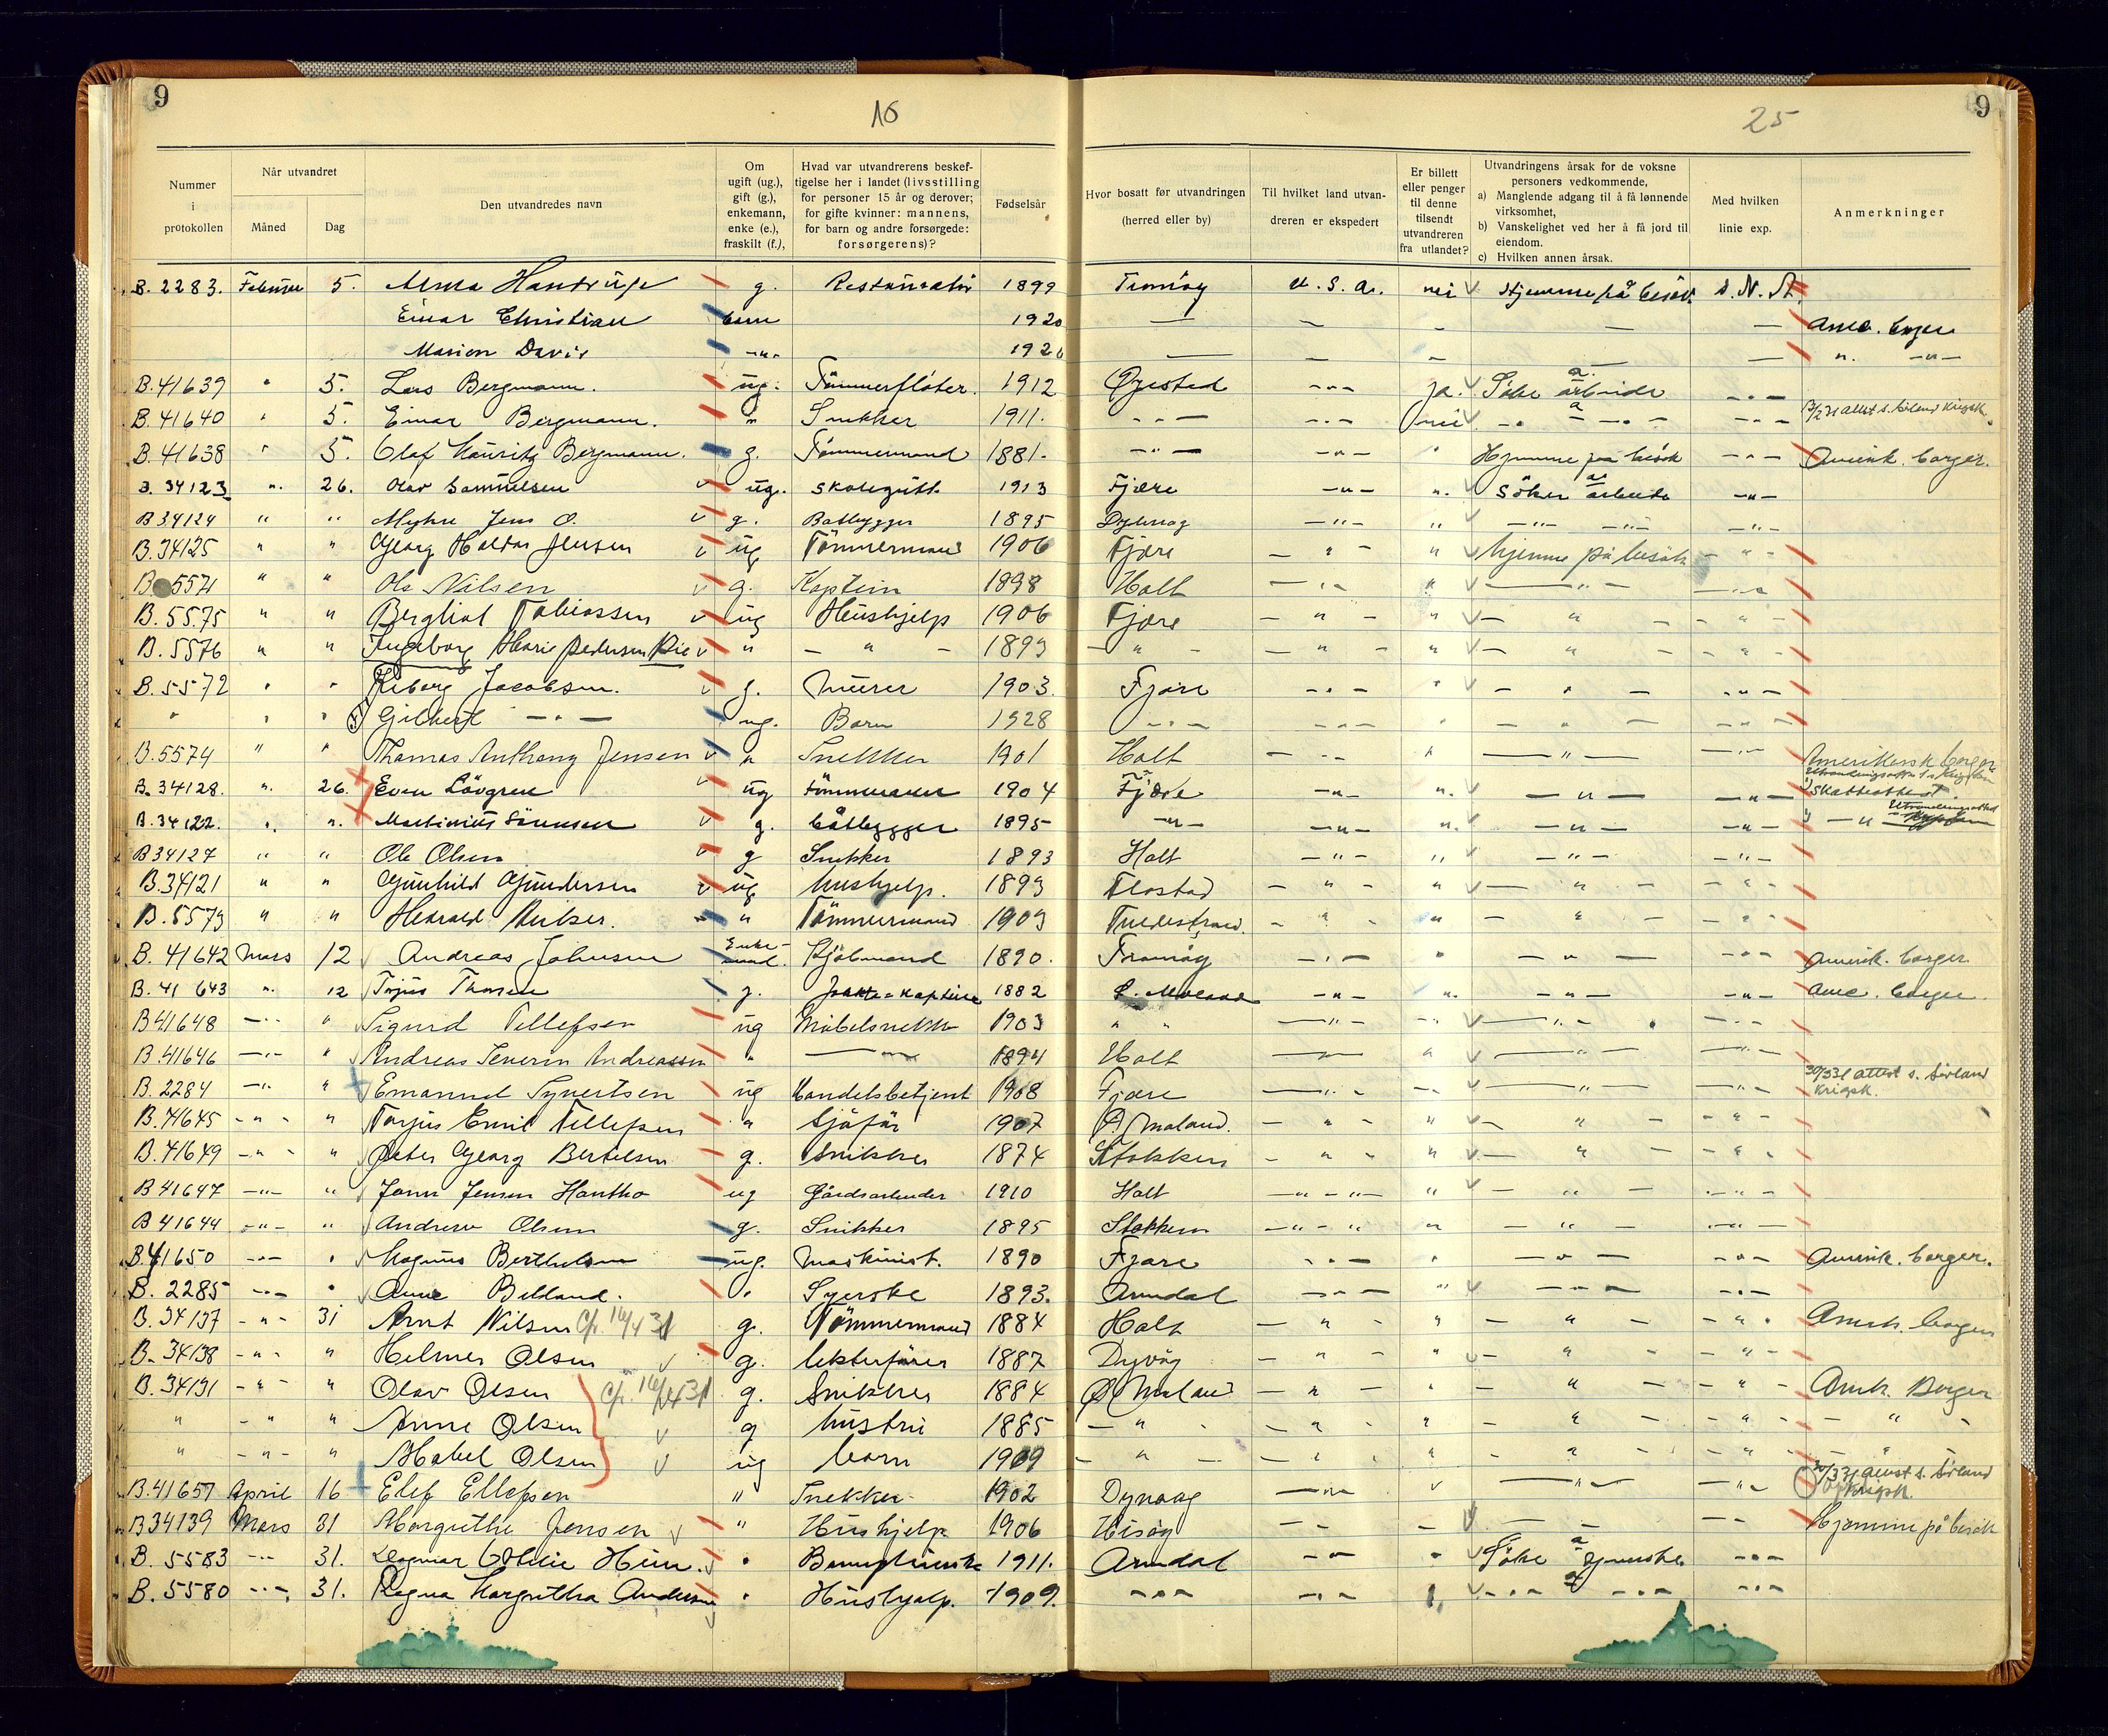 9
16
25
9
Nummer i protokollen
Når utvandret
Måned
Dag
Den utvandredes navn
Om ugift (ug.), gift (g.), enkemann, enke (e.), fraskilt (f.),
Hvad var utvandrerens beskeftigelse her i landet (livsstilling for personer 15 år og derover; for gifte kvinner: mannens, for barn og andre forsørgede: forsørgerens)?
Fødselsår
Hvor bosatt før utvandringen (herred eller by)
Til hvilket land utvandreren er ekspedert
Er billett eller penger til denne tilsendt utvandreren fra utlandet?
Utvandringens årsak for de voksne personers vedkommende,
a) Manglende adgang til å få lønnende virksomhet,
b) Vanskelighet ved her å få jord til eiendom.
c) Hvilken annen årsak.
Med hvilken linie exp.
Anmerkninger
B. 2283. Februar 5. Anna g. 1899 Tromöy U.S.A. nei Hjemme på besök
Einar Christian barn 1920 — — — — — Ame. borger
Marion Davis —"— 192 — — — — — " —"—
B. 41639 " 5. Lars Bergmann. ug. Tömmerfløter. 1912 Øyestad —"— ja. Söke arbeide —"—
B. 41640 " 5. Einar Bergmann. " Snekker 1911. —"— —"— nei —"— —"— —"—
B. 41638 " 5. Olaf Mauritz Bergmann. g. Tömmermand 1881. —"— —"— " Hjemme på besök —"— Amerik. borger.
B. 34123 " 26. Olav Samuelsen ug. skolegutt 1913 Fjære —"— " Söker arbeide —"—
B 34124 " " Myhre Jens O. g. Båtbygger 1895 Dybvåg —"— " —"— —"— —"—
B. 34125 " " Georg Haldor Jensen ug Tömmermand 1906 Fjære —"— " hjemme på besök —"—
B 5571 " " Ole Nilsen g. Kaptein 1898 Holt —"— " —"— —"—
B. 5575 " " Bergliot Tobiassen ug Hushjelp 1906 Fjære —"— " —"— —"—
B. 5576 " " Ingeborg Marie Pedersen " —"— 1893 —"— —"— " —"— —"—
B. 5572 " " Jacobsen. g. Murer 1903. Fjære —"— " —"— —"—
" " " Gilbert —"— ug. Barn 1928 —"— —"— " —"— —"—
B. 5574 " " Thomas Anthony Jensen " Snekker 1901 Holt —"— " —"— —"— Amerikansk borger
B. 34128. " 26. Even Lövgren ug tömmermann 1904 Fjære —"— " —"— —"— Skatteattest
B. 34122. " " Martinius Sörensen g. båtbygger 1895 —"— —"— " —"— —"—
B 34127 " " Ole Olsen g Snekker 1893 Holt —"— " —"— —"—
B. 34121 " " Gunhild Gundersen ug hushjelp. 1893 Flostad —"— " —"— —"—
B. 5573 " " Harald " Tömmermand 1903 Tvedestrand. —"— " —"— —"—
B. 41642 Mars 12 Andreas Johnsen Enkemand. Sjömand 1890. Tromöy —"— " —"— —"— Amerik. borger
B. 41 643 " 12 Terjus Thorsen g. kaptein 1882 Ö. Moland —"— " —"— —"— Ame. borger
B 41648 —"— " Sigurd Tellefsen ug Möbelsnekk 1903 " " —"— —"— —"— —"—
B. 41646 —"— " Andreas Severin Andreassen " —"— 1894 Holt —"— " —"— —"—
B. 2284 —"— " Emanuel Syvertsen ug Handelsbetjent 1908 Fjære —"— —"— —"— —"— 30/3 31 attest s. Sörland krigsk.
B. 41645 —"— " Torjus Emil Tellefsen " Sjöfar 1907 Ö. Moland. —"— " —"— —"—
B. 41649 —"— " Peter Georg Bertelsen g. Snikker 1874 Stokken —"— " —"— —"—
B 41647 —"— " Jens Jensen Hantho ug Gårdsarbeider 1910 Holt —"— " —"— —"—
B 41644 —"— " Andrew Olsen g. Snikker 1895 Stokken —"— " —"— —"—
B. 41650 —"— " Magnus Berthelsen ug. Maskinist. 1890 Fjære —"— " —"— —"— Amerik. borger.
B. 2285 —"— " Anne Beldand. " Syerske 1893. Arendal —"— " —"— —"—
B. 34137 —"— 31 Arnt Nilsen 14/4 31 g. Tömmermand 1884 Holt —"— " —"— —"— Amrk. borger
B. 34138 —"— " Helmer Olsen g. lekterfører 1887 Dyvåg —"— " —"— —"—
B. 34131 —"— " Olav Olsen 16/4 31 g. Snikker 1884 Ø Moland —"— " —"— —"— Amrk. Borger
" —"— " Anne Olsen g hustru 1885 —"— —"— " —"— —"— —"—
" —"— " Mabel Olsen ug barn 1909 —"— —"— " —"— —"— "
B. 41657 April 16 Elef Ellefsen " Snekker 1902 Dypvaag —"— —"— —"— 30/3 31 attest s. Sörland krigsk.
B 34139 Mars 31 Margrethe Jensen " Hushjelp 1906 Hisöy —"— — —"— —"— Hjemme på besök
B. 5583 —"— 31. Dagmar Othilie " 1911. Arendal —"— " Söke tjeneste —"—
B. 5580 —"— 31. Ragna Margretha Andersen " Hushjelp. 1909. —"— —"— " —"— —"— —"—